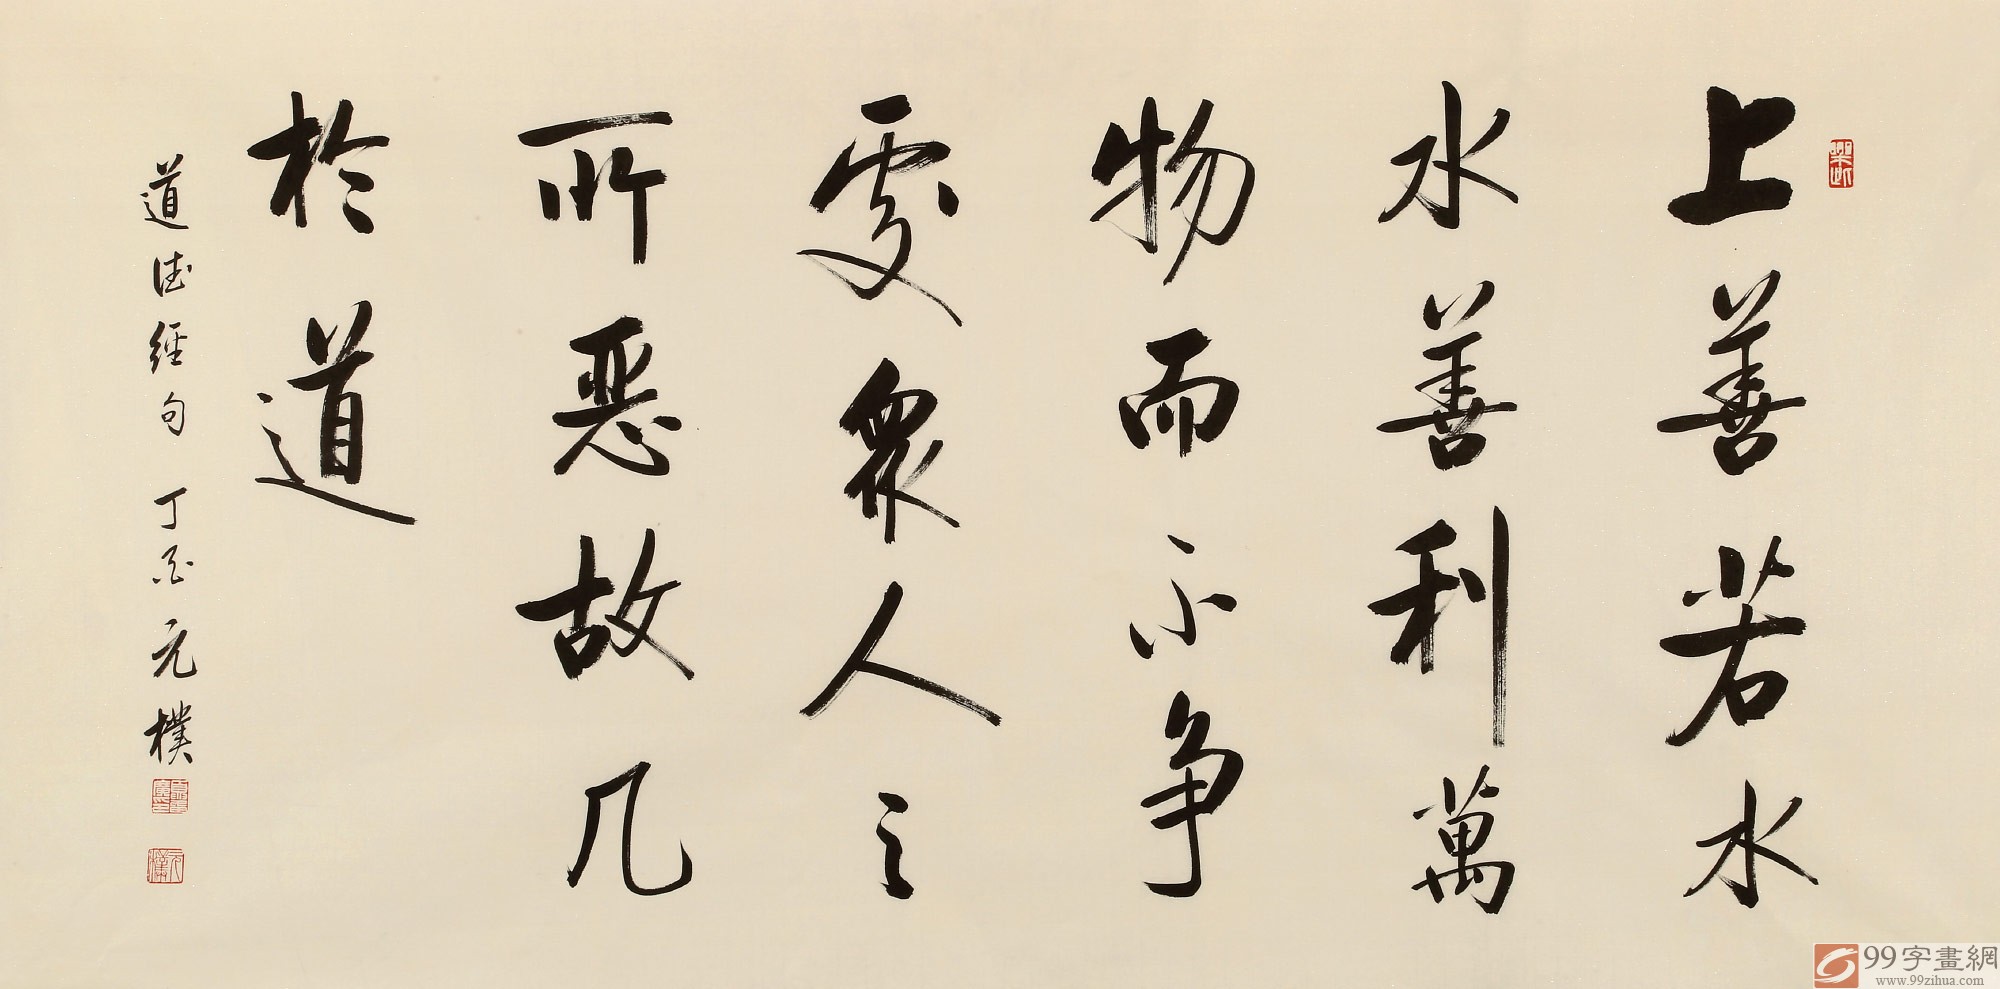 上善若水
水善利萬
物而不争
處衆人之
所恶故几
於道
道德經句 丁酉 元樸
99字畫網
www.99zihua.com